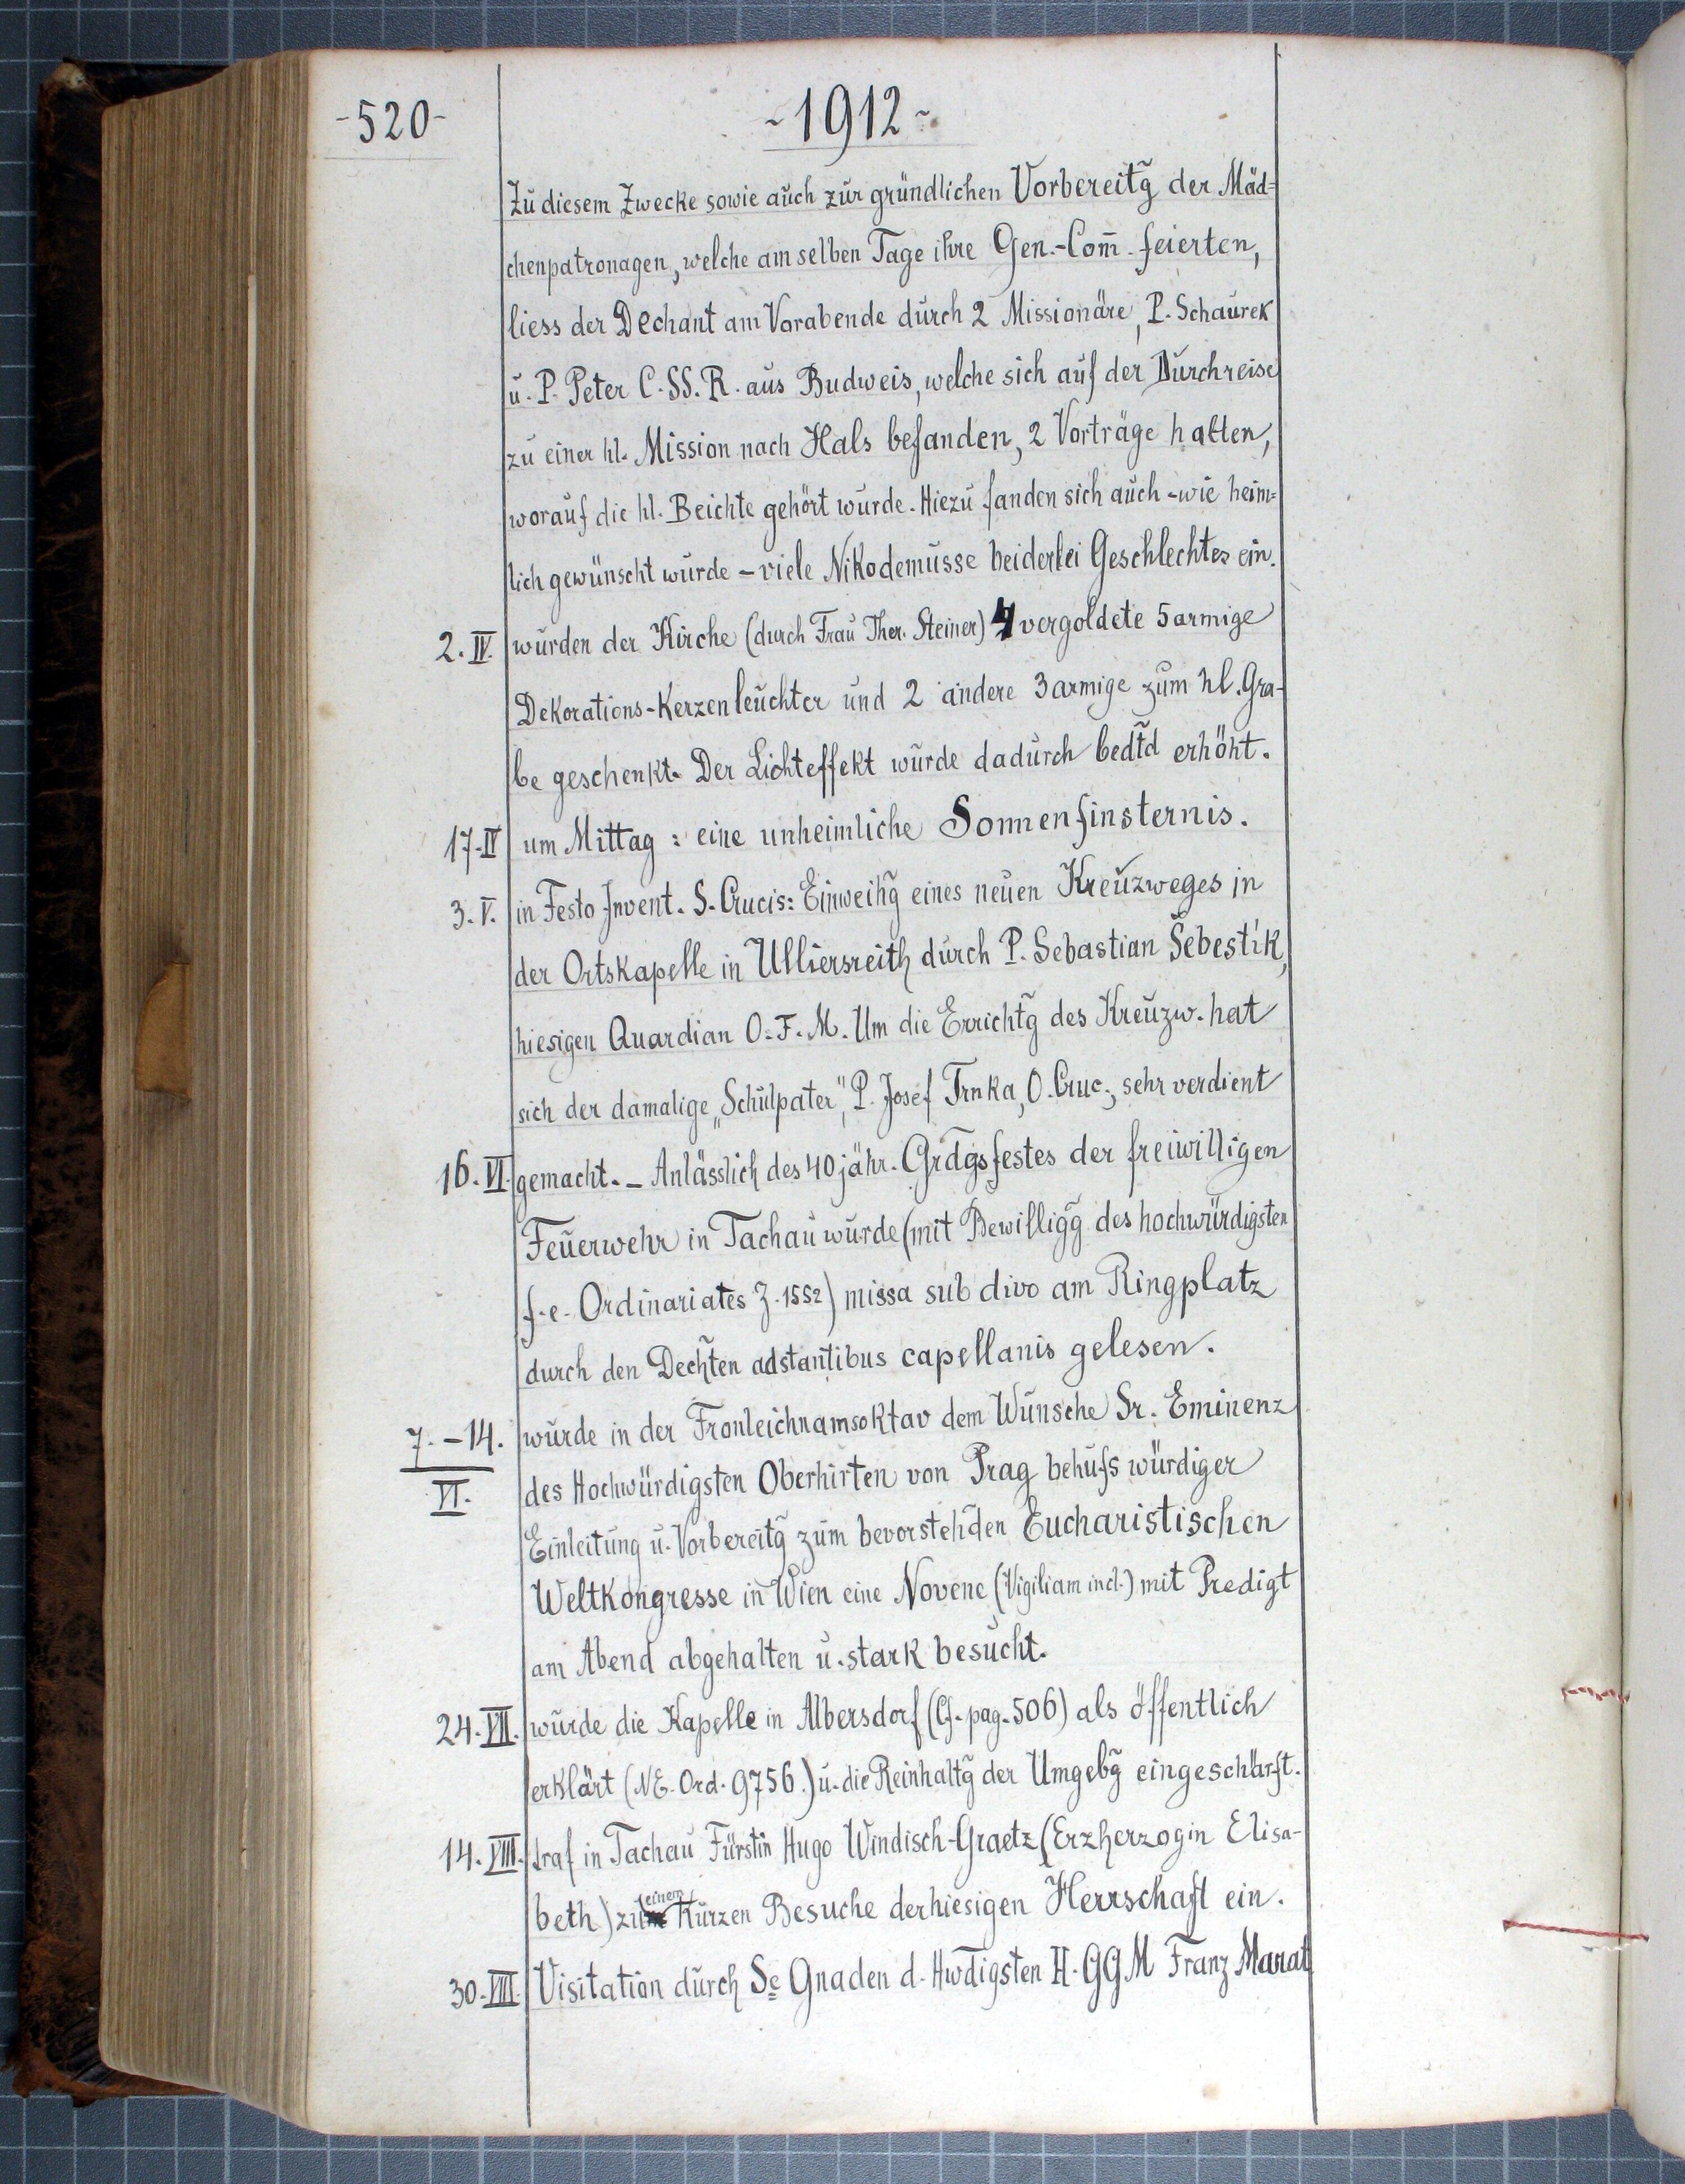 -520-
~1912~
Zu diesem Zwecke sowie auch zur gründlichen Vorbereitg̃ der Mäd=
chenpatronagen, welche am selben Tage ihre Gen.-Com̄. feierten,
liess der Dechant am Vorabende durch 2 Missionäre, P. Schaurek
u. P. Peter C. SS. R. aus Budweis, welche sich auf der Durchreise
zu einer hl. Mission nach Hals befanden, 2 Vorträge halten,
worauf die hl. Beichte gehört wurde. Hiezu fanden sich auch - wie heim=
lich gewünscht wurde - viele Nikodemusse beiderlei Geschlechtes ein.
2. IV. wurden der Kirche (durch Frau Ther. Steiner) 4 vergoldete 5armige
Dekorations-Kerzenleuchter und 2 andere 3armige zum hl. Gra-
be geschenkt. Der Lichteffekt wurde dadurch bedt̃d erhöht.
17. IV um Mittag: eine unheimliche Sonnenfinsternis.
3. V. in Festo Invent. S. Crucis: Einweihg̃ eines neuen Kreuzweges in
der Ortskapelle in Ulliersreith durch P. Sebastian Šebestík,
hiesigen Quardian O. F. M. Um die Errichtg̃ des Kreuzw. hat
sich der damalige „Schulpater", P. Josef Trnka, O. Cruc., sehr verdient
16. VI. gemacht. - Anlässlich des 40jähr. Grd̃gsfestes der freiwilligen
Feuerwehr in Tachau wurde (mit Bewilligg̃ des hochwürdigsten
f. e. Ordinariates Z. 1552) missa sub divo am Ringplatz
durch den Dech̃ten adstantibus capellanis gelesen.
7. - 14. wurde in der Fronleichnamsoktav dem Wunsche Sr. Eminenz
VI. des Hochwürdigsten Oberhirten von Prag behufs würdiger
Einleitung u. Vorbereitg̃ zum bevorsteh̃den Eucharistischen
Weltkongresse in Wien eine Novene (Vigiliam incl.) mit Predigt
am Abend abgehalten u. stark besucht.
24. VII. wurde die Kapelle in Albersdorf (Cf. pag. 506) als öffentlich
erklärt (NE. Ord. 9756.) u. die Reinhaltg̃ der Umgebg̃ eingeschärft.
14. VIII. traf in Tachau Fürstin Hugo Windisch-Graetz (Erzherzogin Elisa-
beth) zu einem kurzen Besuche der hiesigen Herrschaft ein.
30. VIII. Visitation durch Se Gnaden d. Hwd̃igsten H. GGM Franz Marat